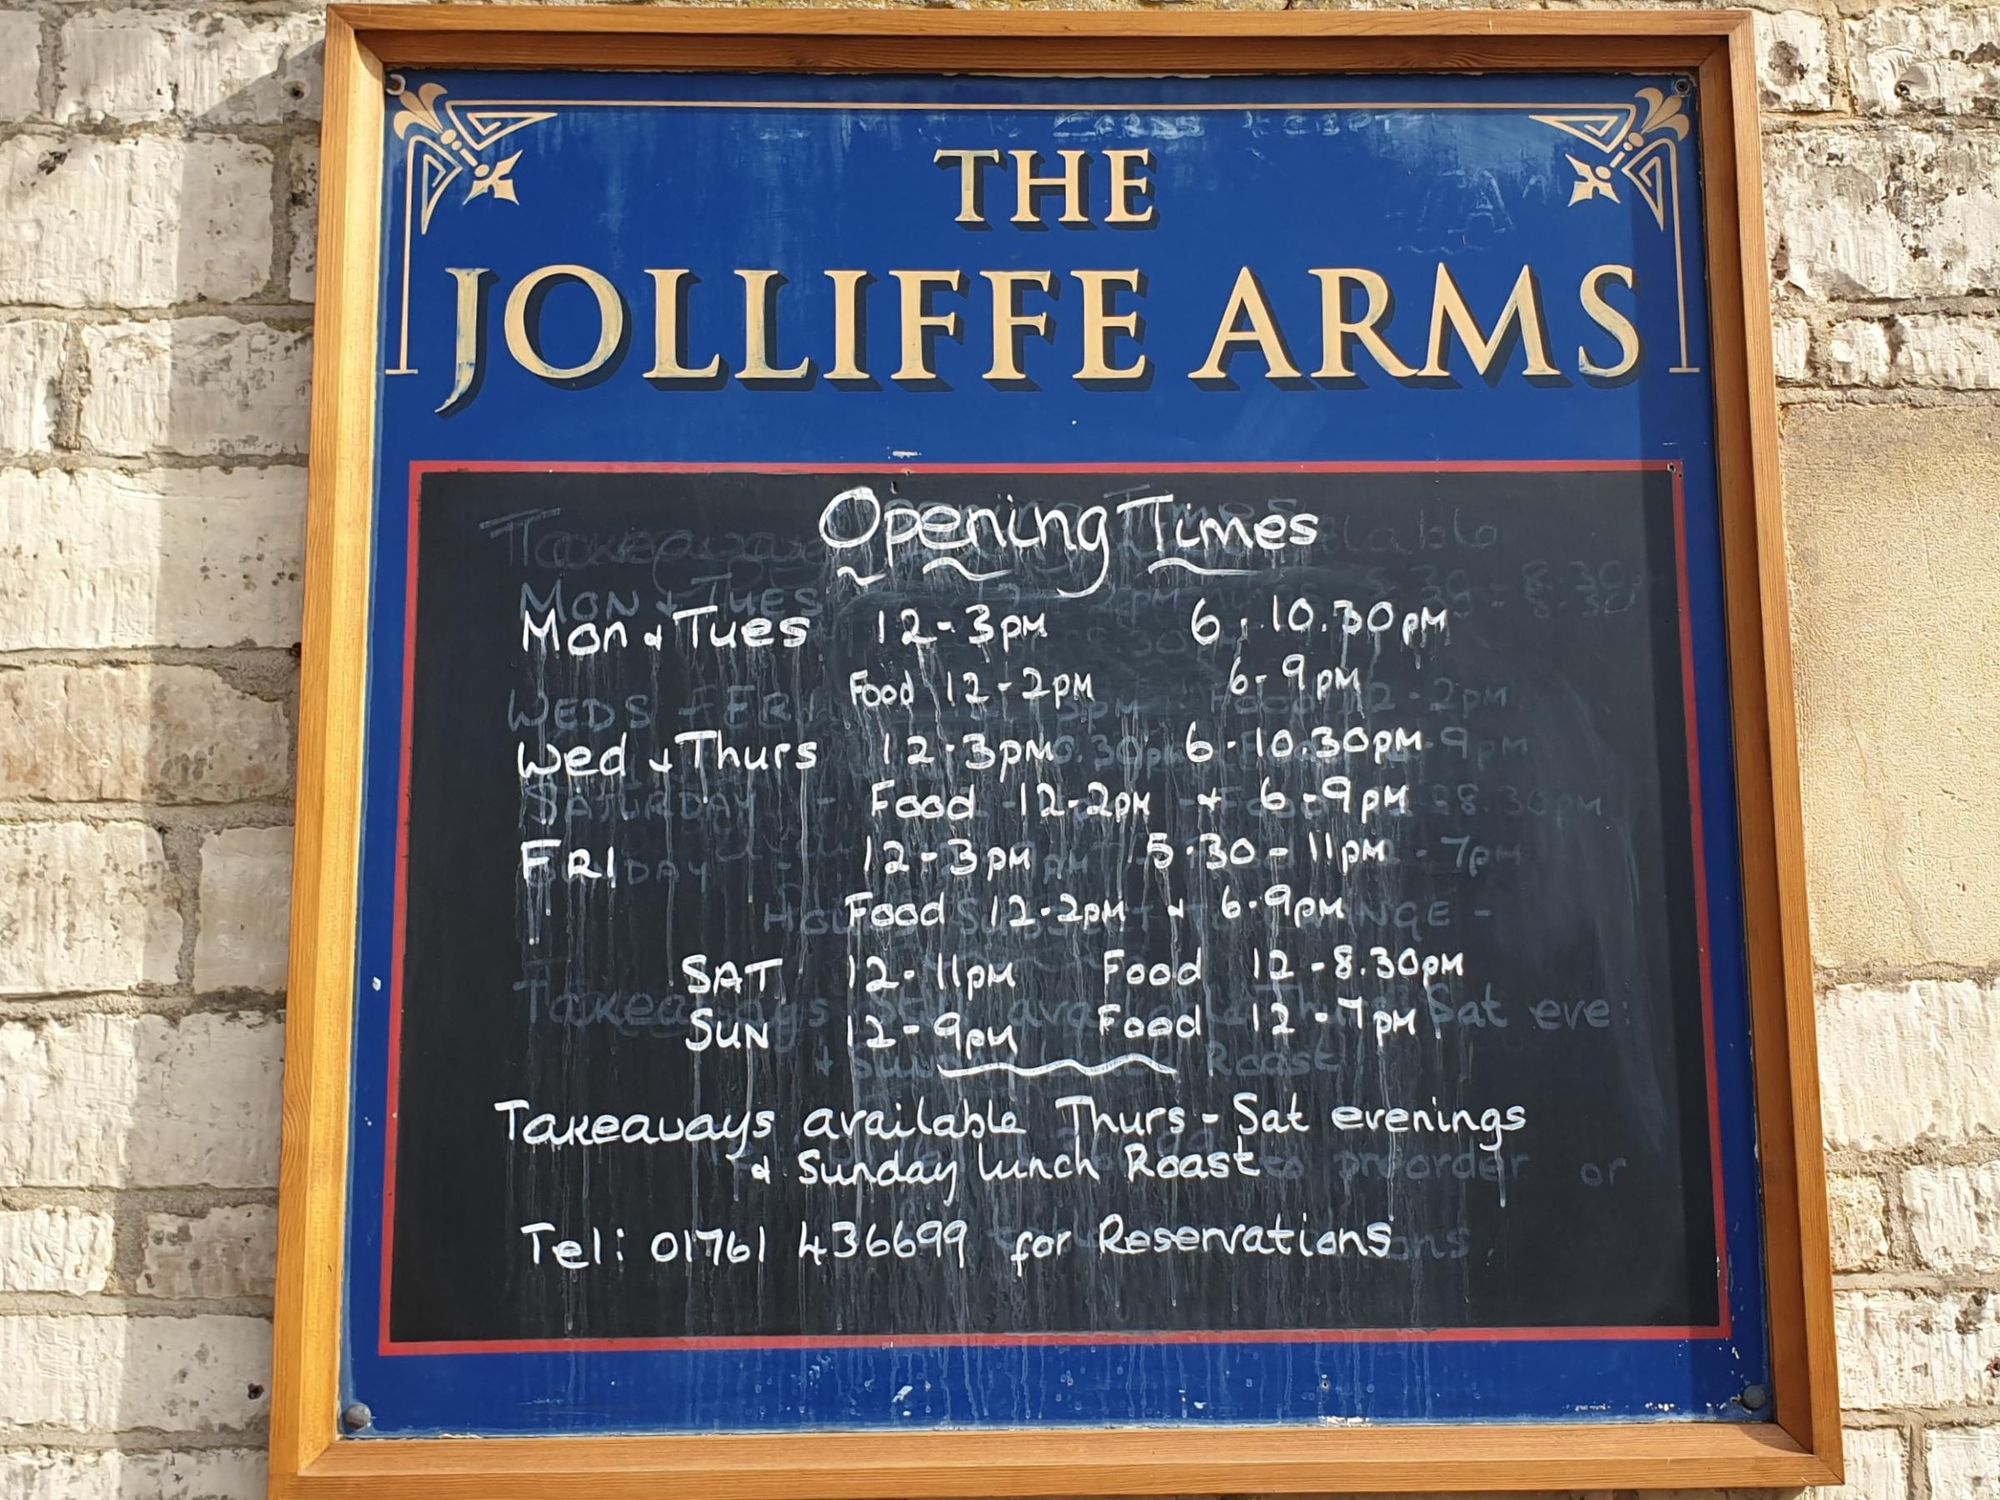 THE
JOLLIFFE ARMS
Opening Times
Mon & Tues 12-3pm 6-10.30pm
Food 12-2pm 6-9pm
Wed & Thurs 12-3pm 6-10.30pm
Food 12-2pm & 6-9pm
FRI 12-3pm 5.30-11pm
Food 12-2pm & 6-9pm
SAT 12-11pm Food 12-8.30pm
SUN 12-9pm Food 12-7pm
Takeaways available Thurs-Sat evenings
& Sunday lunch Roast
Tel: 01761 436699 for Reservations